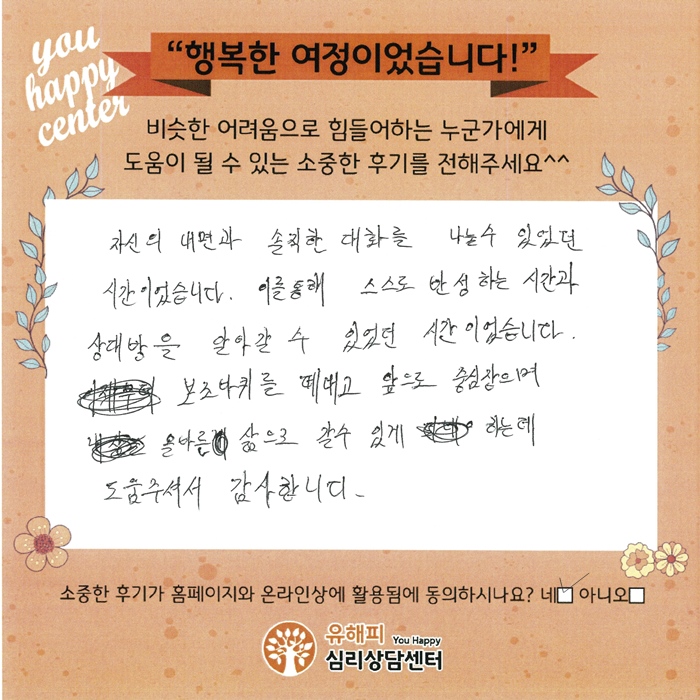 you
happy
center
“행복한 여정이었습니다!”
비슷한 어려움으로 힘들어하는 누군가에게
도움이 될 수 있는 소중한 후기를 전해주세요^^
자신의 내면과 솔직한 대화를 나눌수 있었던
시간이었습니다. 이를통해 스스로 반성하는 시간과
상대방을 알아갈 수 있었던 시간이었습니다.
보조바퀴를 떼내고 앞으로 중심잡으며
올바른 삶으로 갈수 있게 하는데
도움주셔서 감사합니다.
소중한 후기가 홈페이지와 온라인상에 활용됨에 동의하시나요? 네 아니오
유해피 You Happy
심리상담센터